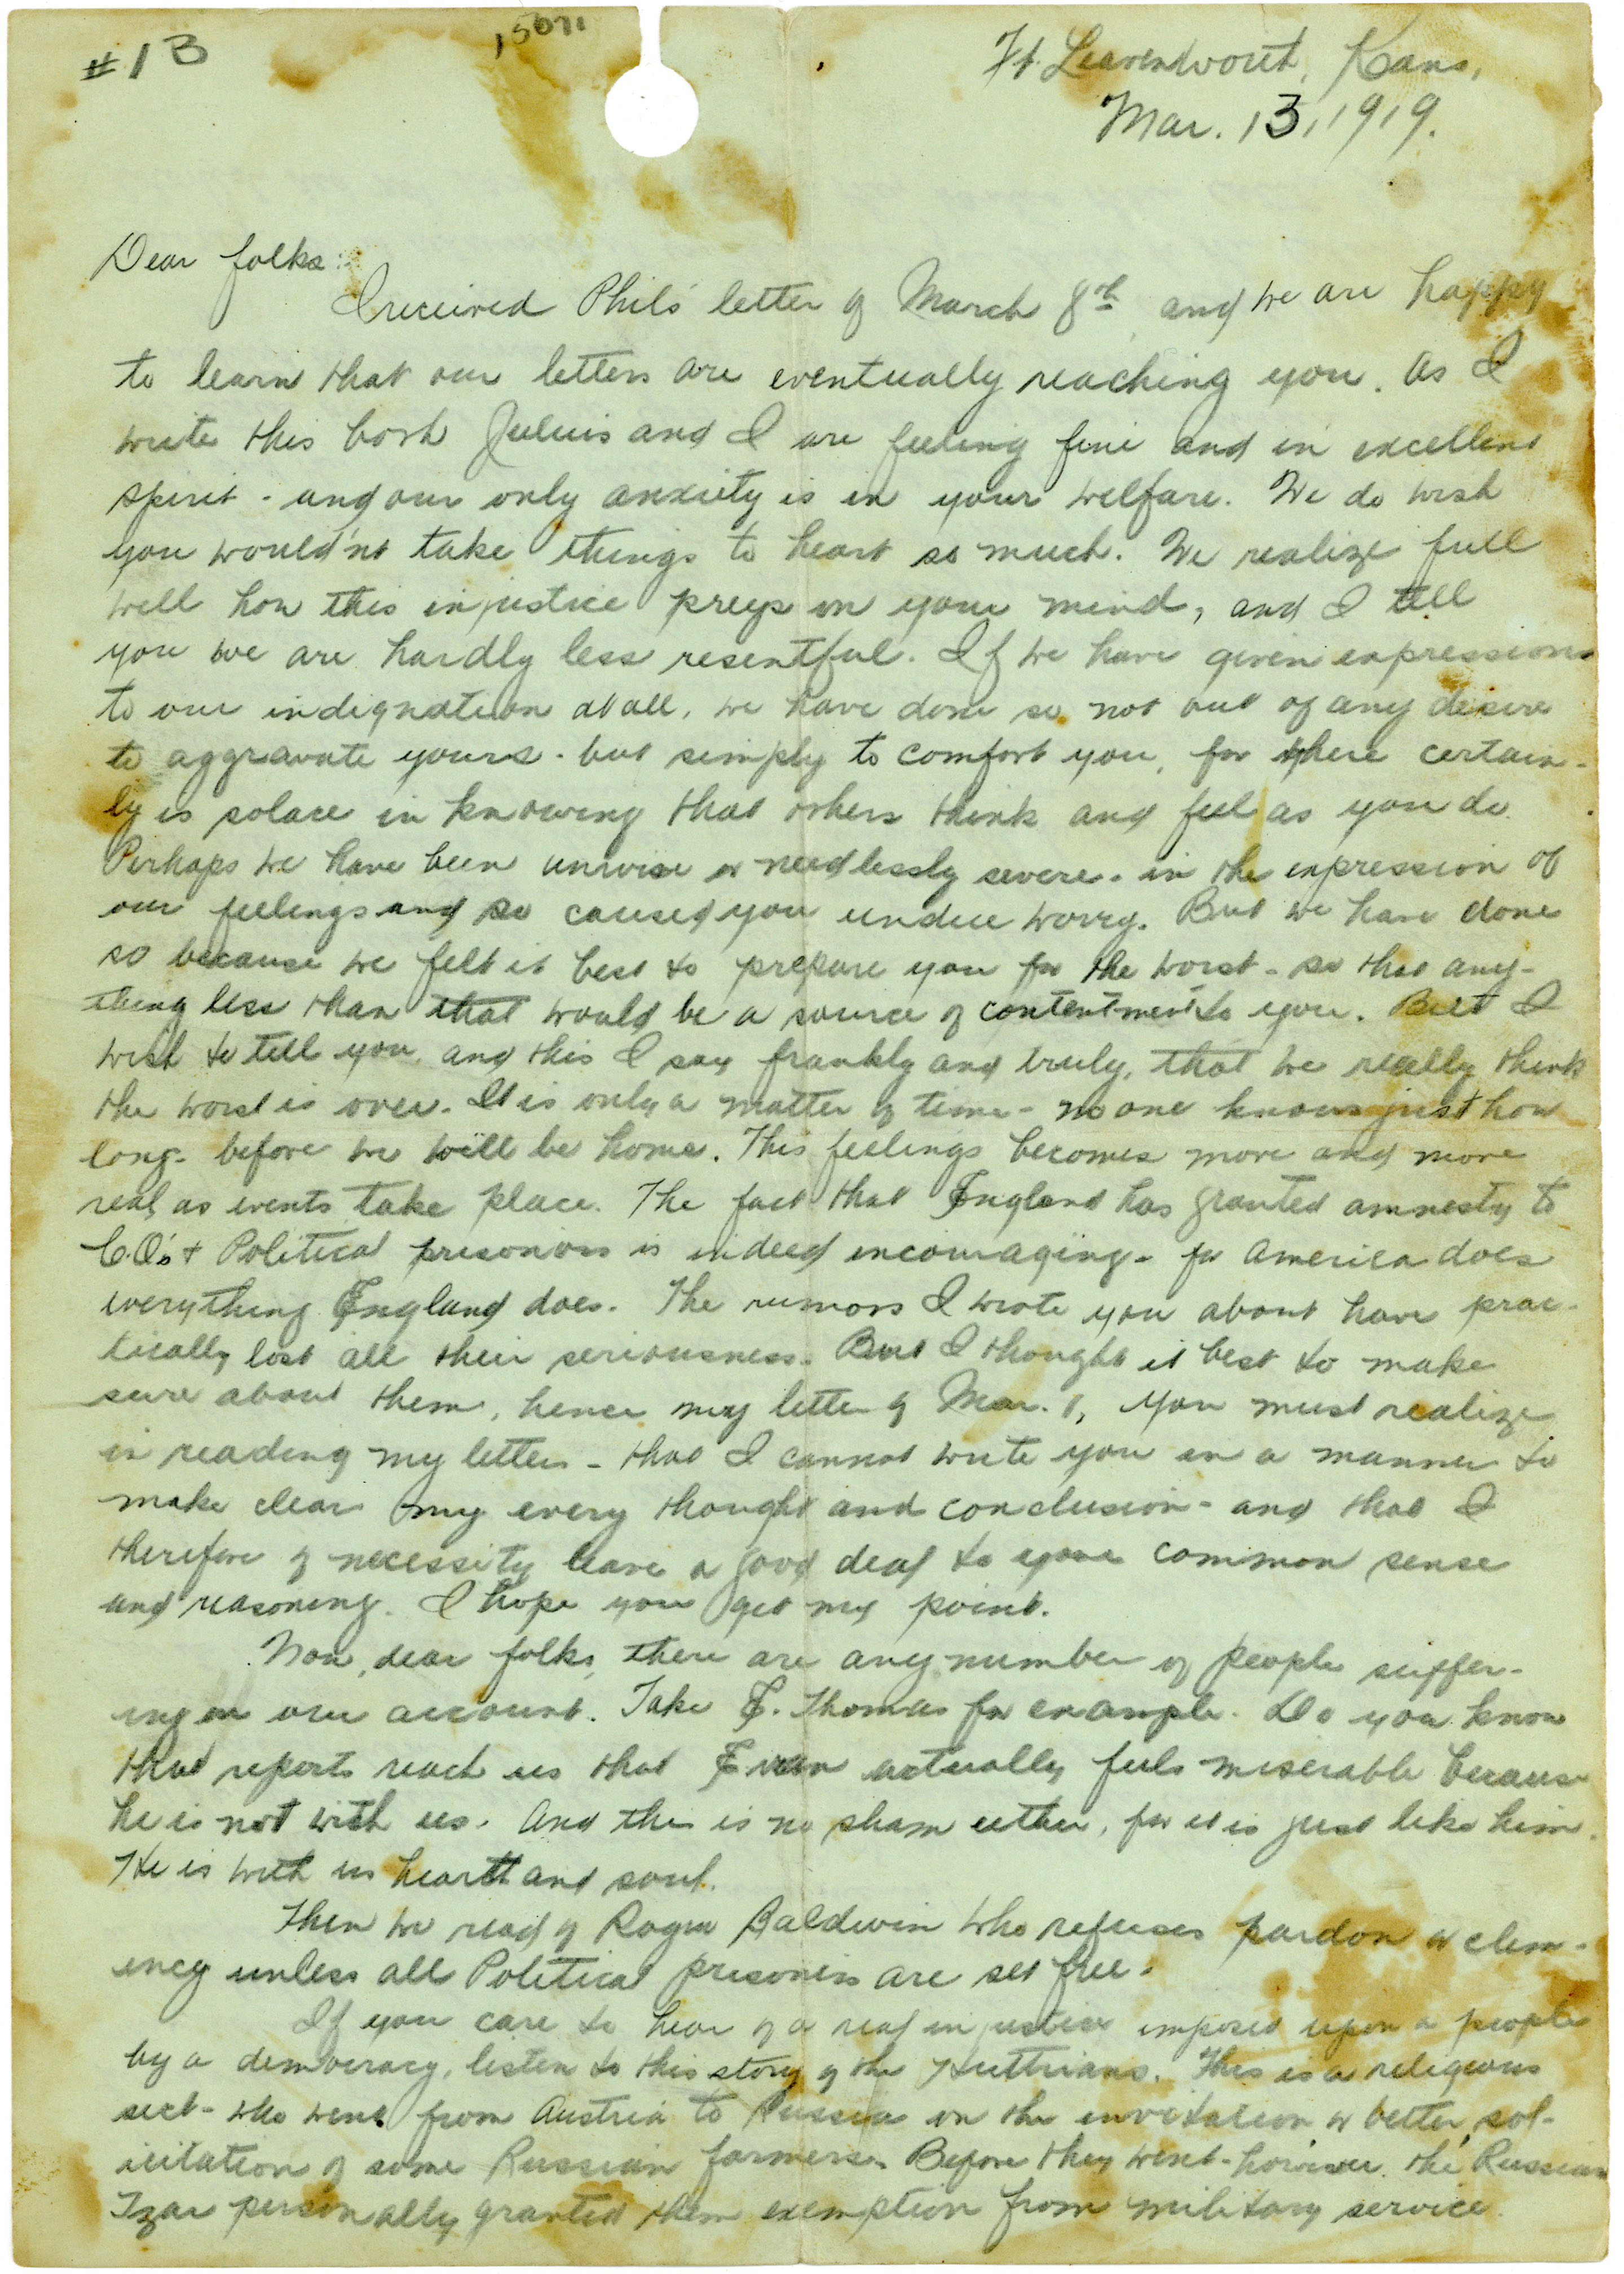 #13
15071
Ft. Leavenwort, Kans,
Mar. 13, 1919.
Dear folks:
I received Phil's letter of March 8th and we are happy
to learn that our letters are eventually reaching you. As I
write this both Julius and I are feeling fine and in excellent
spirit - and our only anxiety is in your welfare. We do wish
you would'nt take things to heart so much. We realize full
well how this injustice preys on your mind, and I tell
you we are hardly less resentful. If we have given expressions
to our indignation at all, we have done so not out of any desire
to aggravate yours - but simply to comfort you, for there certain-
ly is solace in knowing that others think and feel as you do.
Perhaps we have been unwise or needlessly severe - in the expression of
our feelings and so caused you undue worry. But we have done
so because we felt it best to prepare you for the worst - so that any-
thing less than that would be a source of contentment to you. But I
wish to tell you, and this I say frankly and truly, that we really think
the worst is over. It is only a matter of time - no one knows just how
long - before we will be home. This feelings becomes more and more
real as events take place. The fact that England has granted amnesty to
C.O.'s + Political prisonors is indeed encouraging - for America does
everything England does. The rumors I wrote you about have prac-
tically lost all their seriousness. But I thought it best to make
sure about them, hence my letter of Mar. 1, You must realize
in reading my letters - that I cannot write you in a manner to
make clear my every thought and conclusion - and that I
therefore of necessity leave a good deal to your common sense
and reasoning. I hope you get my point.
Now, dear folks, there are any number of people suffer-
ing on our account. Take E. Thomas for example. Do you know
that reports reach us that Evan actually feels miserable because
he is not with us. And this is no sham either, for it is just like him.
He is with us heart and soul.
Then we read of Roger Baldwin who refuses pardon or clem-
ency unless all Political prisoners are set free.
If you care to hear of a real injustice imposed upon a people
by a democracy, listen to this story of the Hutthians. This is a religious
sect - who went from Austria to Russia on the invitation or better sol-
icitation of some Russian farmers. Before they went - however, the Russian
Tzar personally granted them exemption from military service.